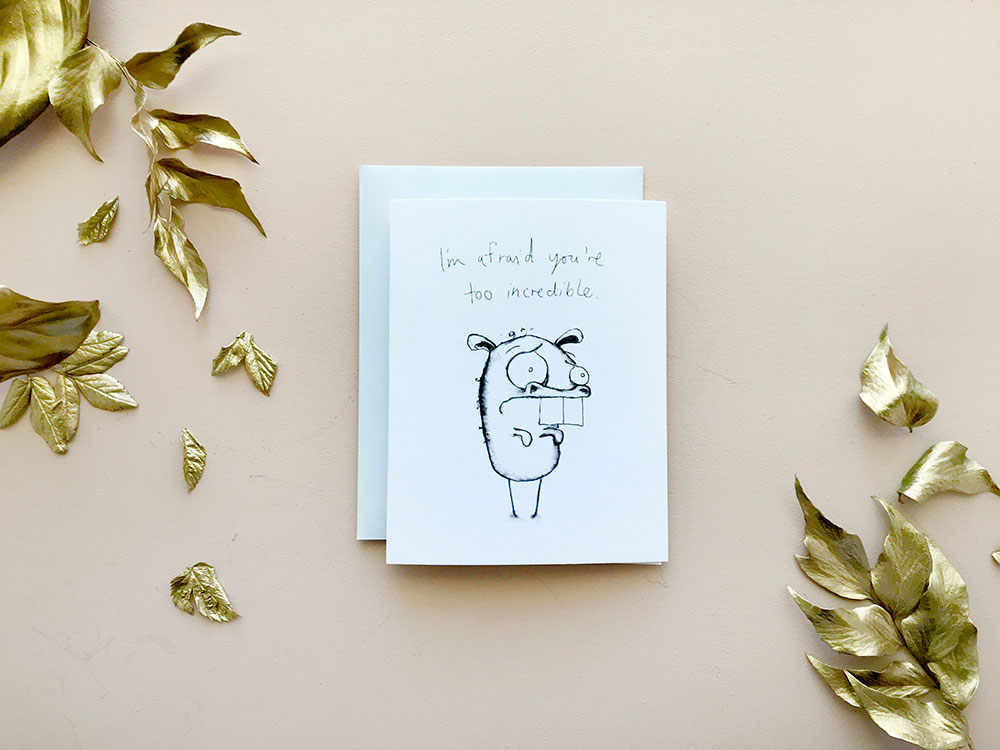 I'm afraid you're
too incredible.